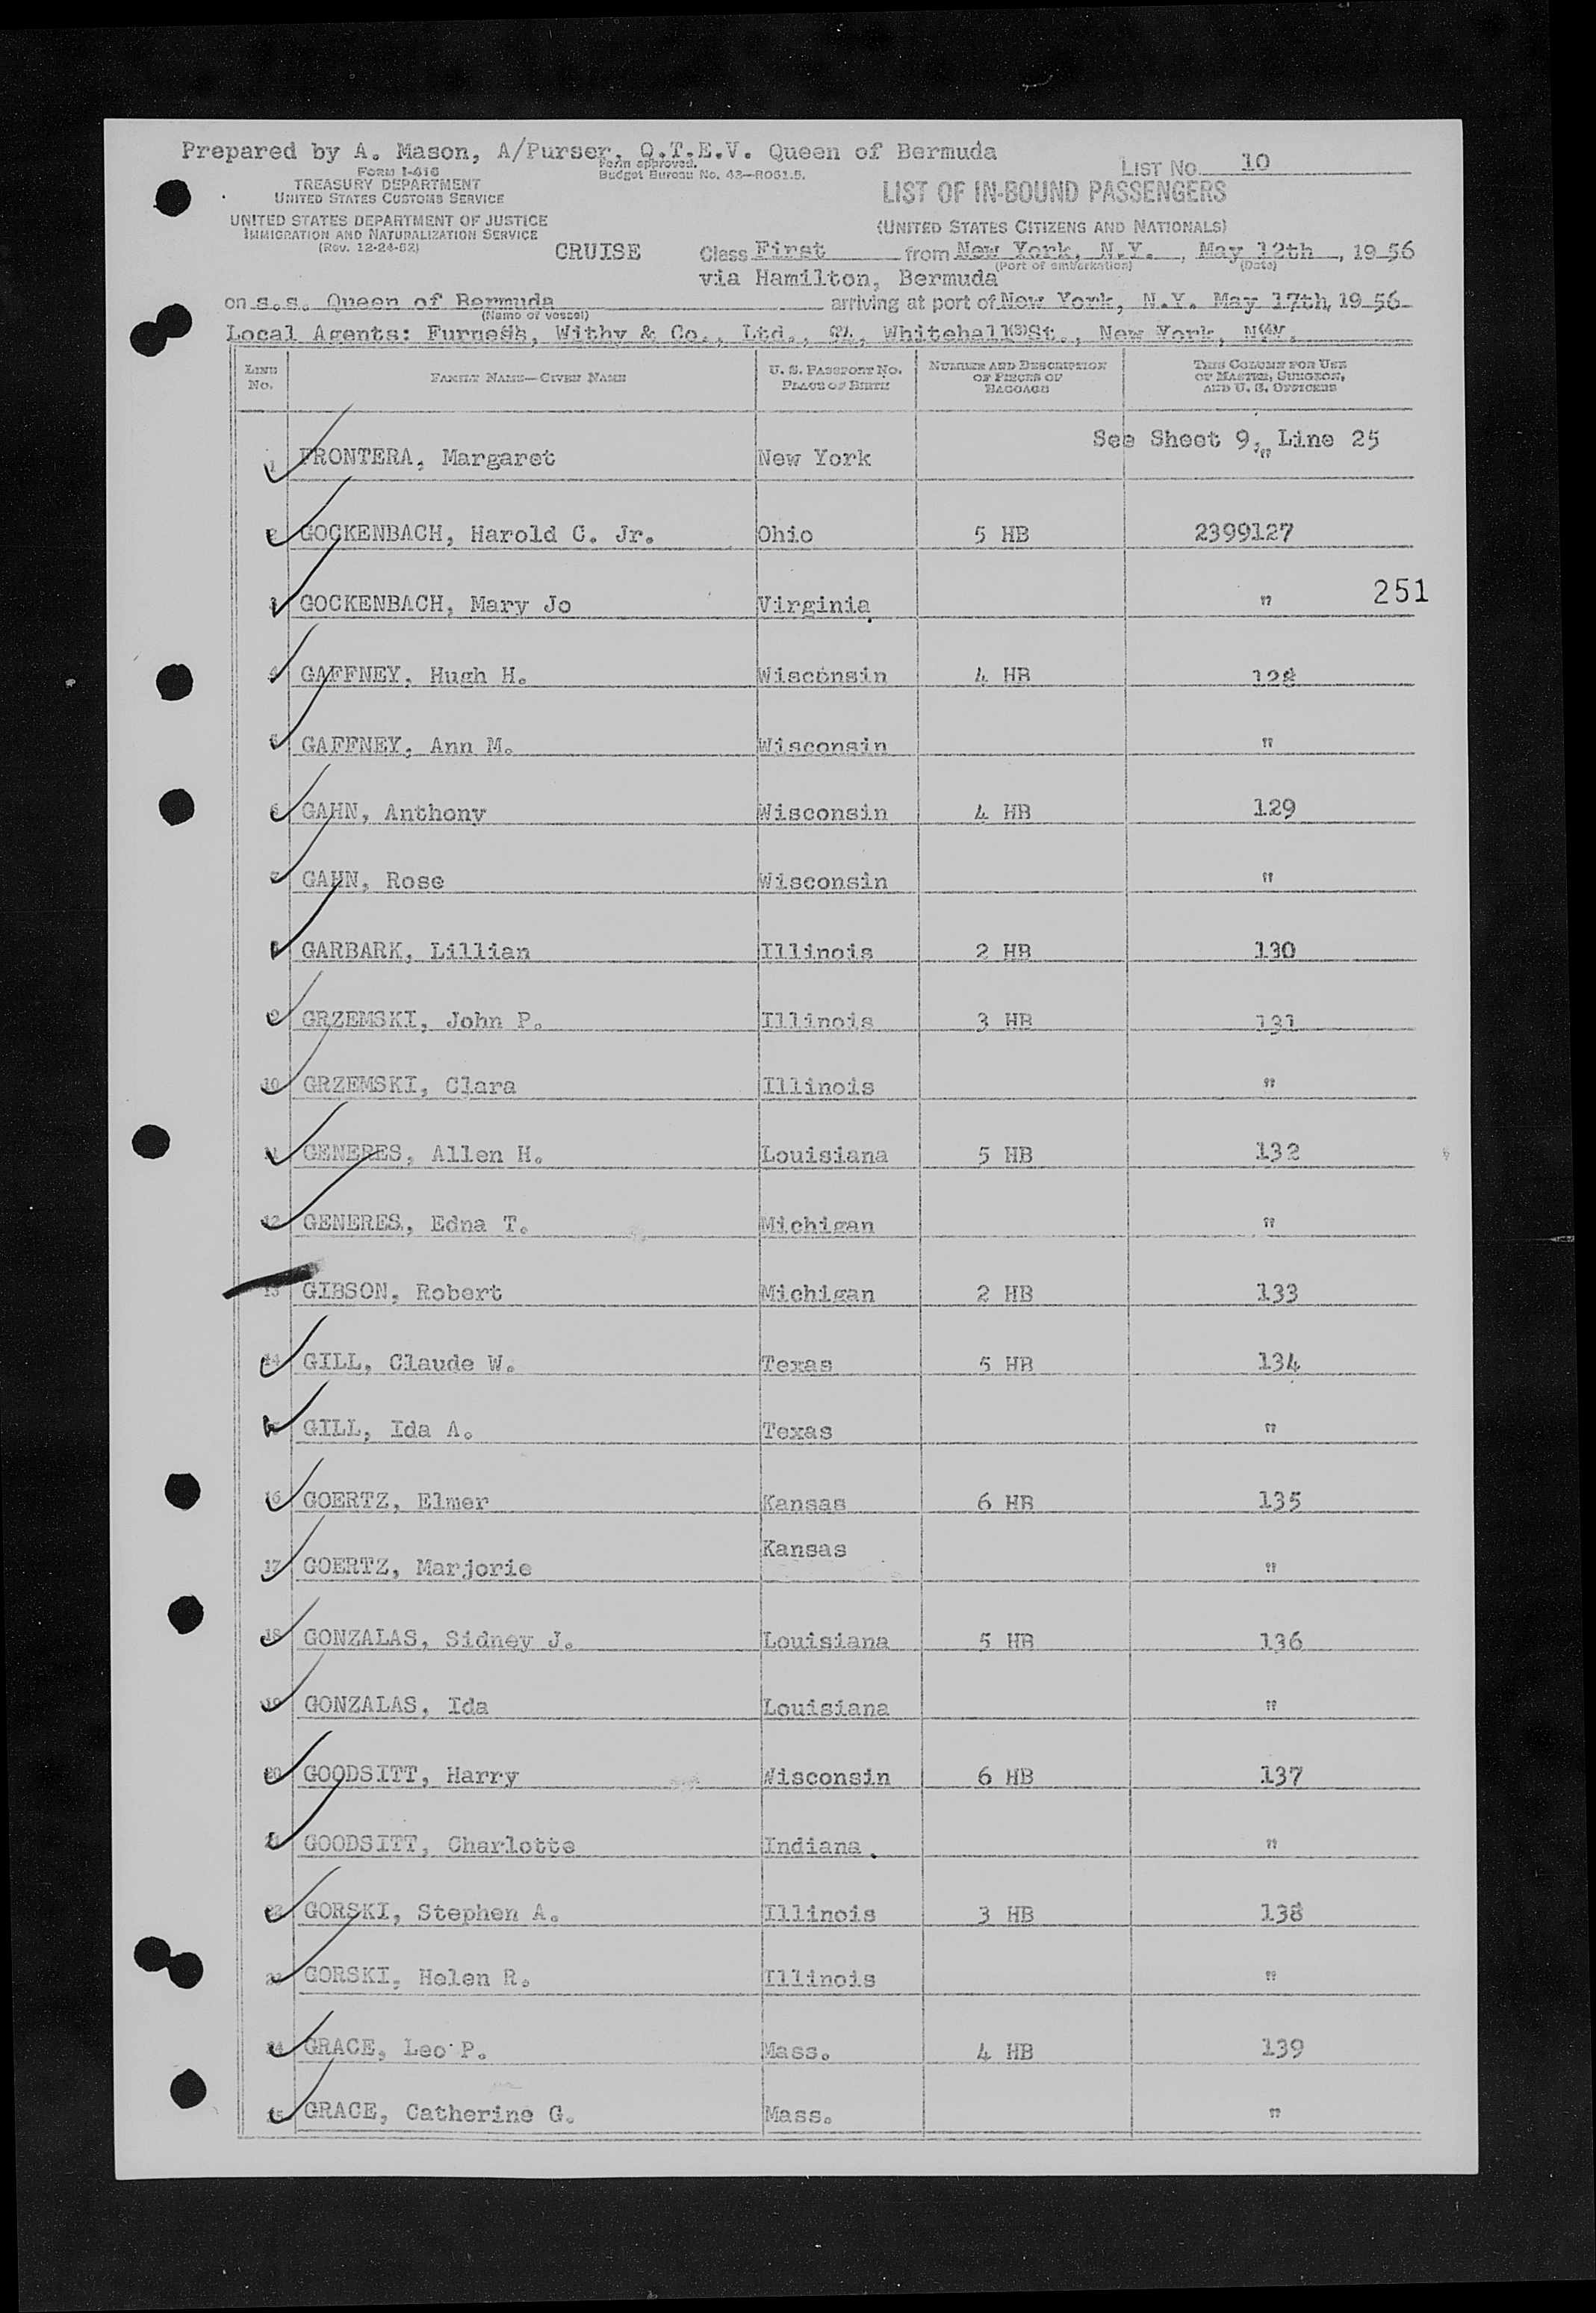 Prepared by A. Mason, A/Purser, Q.T.E.V. Queen of Bermuda
Form approved.
Budget Bureau No. 43—R061.5.
LIST No. 10
FORM I-416
TREASURY DEPARTMENT
UNITED STATES CUSTOMS SERVICE
LIST OF IN-BOUND PASSENGERS
UNITED STATES DEPARTMENT OF JUSTICE
IMMIGRATION AND NATURALIZATION SERVICE
(Rev. 12-24-52)
(UNITED STATES CITIZENS AND NATIONALS)
CRUISE Class First from New York, N.Y., May 12th, 1956
(Port of embarkation) (Date)
via Hamilton, Bermuda
on s.s. Queen of Bermuda arriving at port of New York, N.Y. May 17th, 1956
(Name of vessel)
Local Agents: Furness, Withy & Co., Ltd., 34, Whitehall St., New York, N.Y.
LINE No. FAMILY NAME—GIVEN NAME U. S. PASSPORT No. PLACE OF BIRTH NUMBER AND DESCRIPTION OF PIECES OF BAGGAGE THIS COLUMN FOR USE OF MASTER, SURGEON, AND U. S. OFFICERS
See Sheet 9, Line 25
1 FRONTERA, Margaret New York "
2 GOCKENBACH, Harold C. Jr. Ohio 5 HB 2399127
3 GOCKENBACH, Mary Jo Virginia " 251
4 GAFFNEY, Hugh H. Wisconsin 4 HB 128
5 GAFFNEY, Ann M. Wisconsin "
6 GAHN, Anthony Wisconsin 4 HB 129
7 GAHN, Rose Wisconsin "
8 GARBARK, Lillian Illinois 2 HB 130
9 GRZEMSKI, John P. Illinois 3 HB 131
10 GRZEMSKI, Clara Illinois "
11 GENERES, Allen H. Louisiana 5 HB 132
12 GENERES, Edna T. Michigan "
13 GIBSON, Robert Michigan 2 HB 133
14 GILL, Claude W. Texas 5 HB 134
15 GILL, Ida A. Texas "
16 GOERTZ, Elmer Kansas 6 HB 135
17 GOERTZ, Marjorie Kansas "
18 GONZALAS, Sidney J. Louisiana 5 HB 136
19 GONZALAS, Ida Louisiana "
20 GOODSITT, Harry Wisconsin 6 HB 137
21 GOODSITT, Charlotte Indiana "
22 GORSKI, Stephen A. Illinois 3 HB 138
23 GORSKI, Helen R. Illinois "
24 GRACE, Leo P. Mass. 4 HB 139
25 GRACE, Catherine G. Mass. "